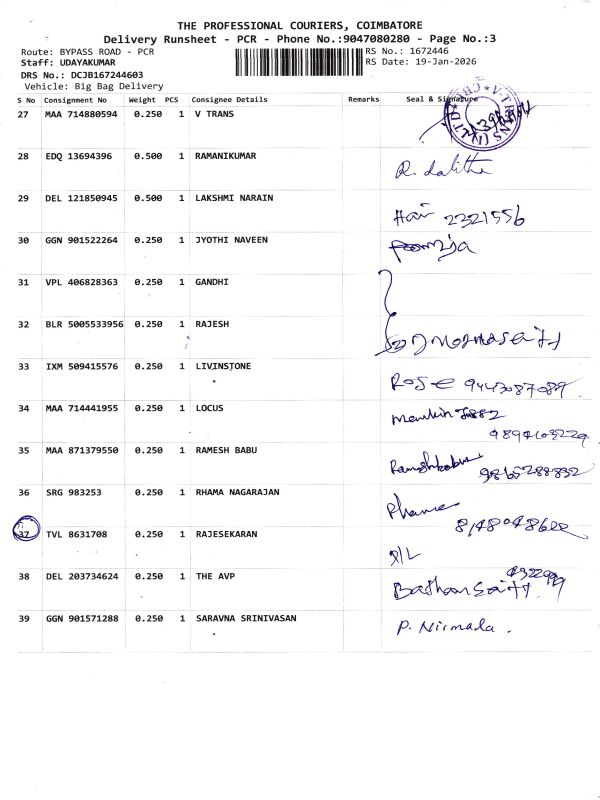 THE PROFESSIONAL COURIERS, COIMBATORE
Delivery Runsheet - PCR - Phone No.:9047080280 - Page No.:3
Route: BYPASS ROAD - PCR
RS No.: 1672446
Staff: UDAYAKUMAR
RS Date: 19-Jan-2026
DRS No.: DCJB167244603
Vehicle: Big Bag Delivery
S No Consignment No Weight PCS Consignee Details Remarks Seal & Signature
27 MAA 714880594 0.250 1 V TRANS
28 EDQ 13694396 0.500 1 RAMANIKUMAR
R. Lalitha
29 DEL 121850945 0.500 1 LAKSHMI NARAIN
Hari 2321556
30 GGN 901522264 0.250 1 JYOTHI NAVEEN
31 VPL 406828363 0.250 1 GANDHI
32 BLR 5005533956 0.250 1 RAJESH
33 IXM 509415576 0.250 1 LIVINSTONE
Rose 9443087089
34 MAA 714441955 0.250 1 LOCUS
35 MAA 871379550 0.250 1 RAMESH BABU
Rameshbabu
36 SRG 983253 0.250 1 RHAMA NAGARAJAN
37 TVL 8631708 0.250 1 RAJESEKARAN
38 DEL 203734624 0.250 1 THE AVP
39 GGN 901571288 0.250 1 SARAVNA SRINIVASAN
P. Nirmada.